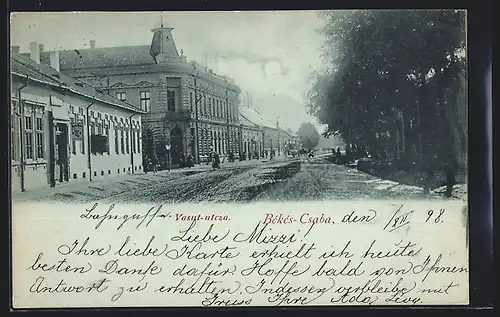 Vasut-utcza.
Békés-Csaba, den 1/XII 98.
Liebe Mizzi!
Ihre liebe Karte erhielt ich heute
besten Dank dafür Hoffe bald von Ihnen
Antwort zu erhalten. Indessen verbleibe mit
Gruss Ihre Ada Levy.